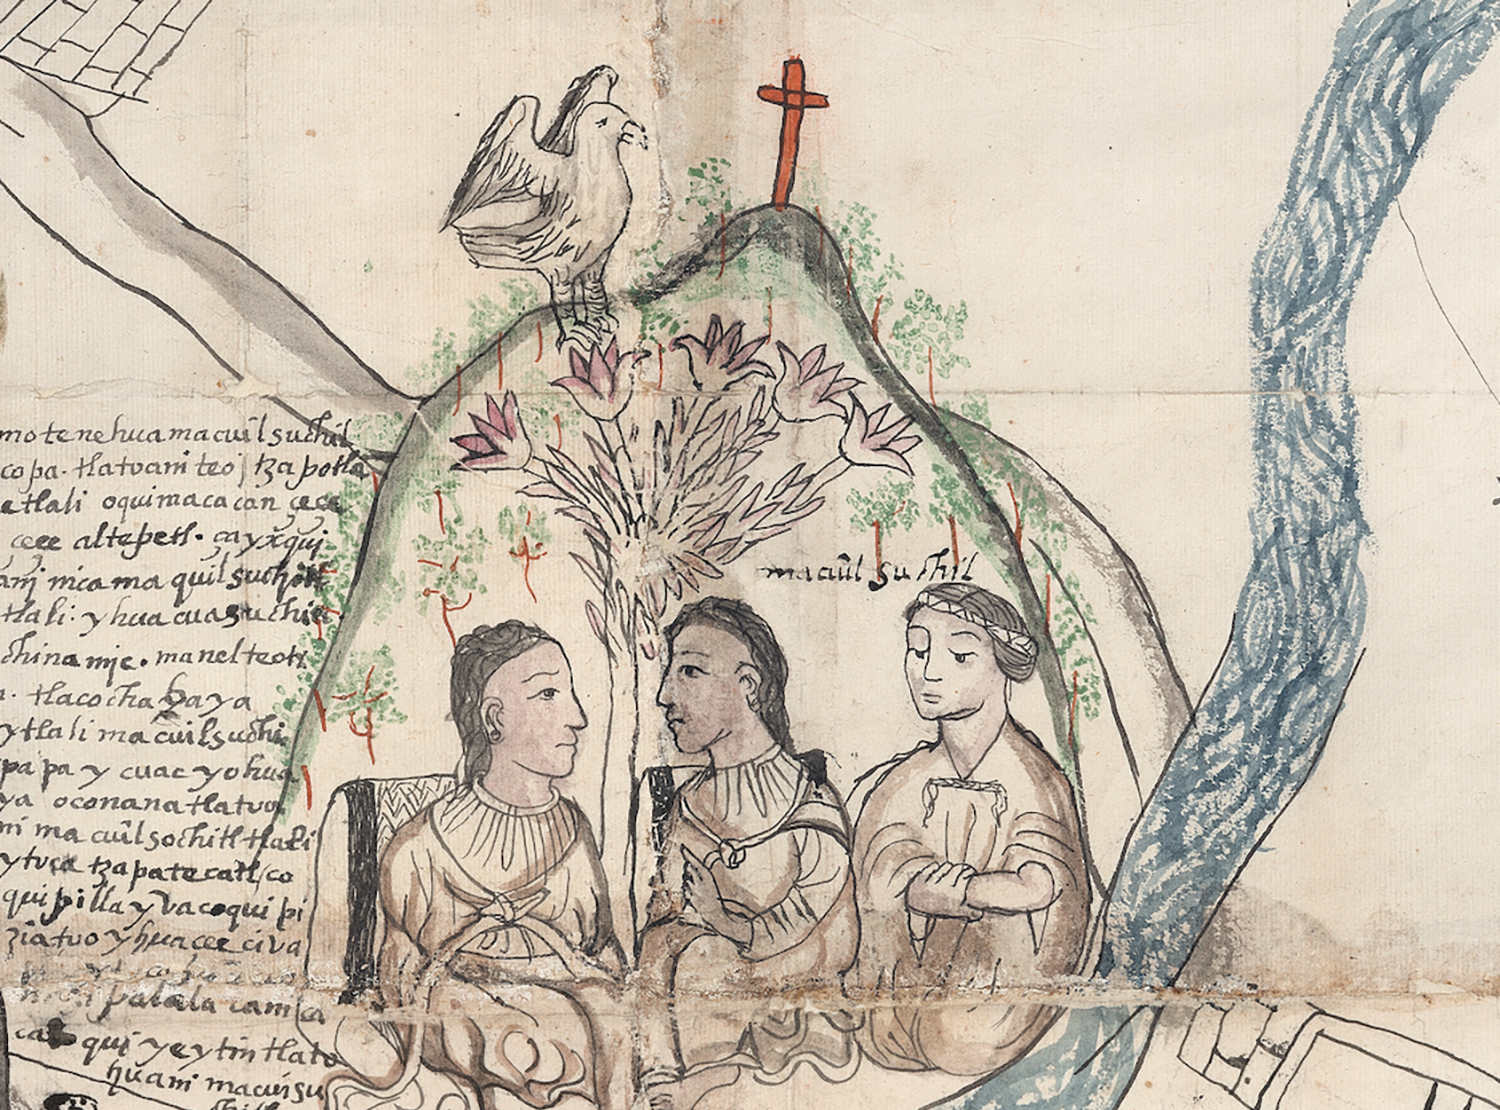 motenehua macuilsuchil
copa. tlatvani teoj tzapotla
etlali oquimacacan çece
çeçe altepetl. çayxqui
anj nica maquilsuchitl
tlali. yhua cuasuchio
chinamje. manel teoti
tlacochapaya
ytlali macuilsuchi
papa y cuac yohua
ya oconana tlatva
ni macuilsochitl tlali
ytuca tzapatecatl co
quipilla y vacoquipi
ziatvo yhua cee civa
palala camca
qui yeytin tlato
huani macuisu
chitl
macuilsuchil